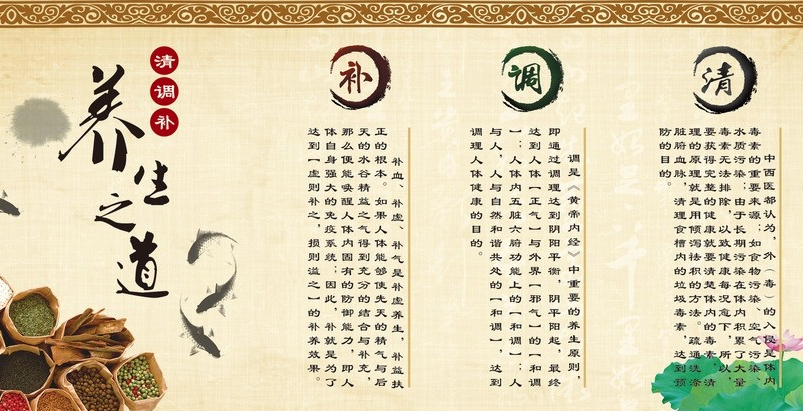 清调补
养生之道
清
中西医部认为，外（毒）的入侵是体内
毒素的重要来源；如食物污染、空气污染、
水质污染；由于长期污染在体内积累了大量
毒素无法排除，以致健康每况愈下，所以，
要获得完整的健康就要清楚体内的毒素，清
理的原理就是用倾泻祛积的方法。疏通洗涤
脏腑血脉，清理食槽内的垃圾毒素，达到预
防的目的。
调
调是《黄帝内经》中重要的养生原则，
即通过调理达到阴阳平衡，阴平阳起，最终
达到人体【正气】与外界【邪气】的【和调
】；人体内五脏六腑功能上的【和调】；人
与人，人与自然和谐共处的【和调】，达到
调理人体健康的目的。
补
补血、补虚、补气是补虚养生，补益扶
正的根本。如果人体能够使先天的精气与后
天的水谷精益之气得到充分的结合与补充，
那么便能唤醒人体内固有的防御能力，即人
体自身强大的免疫系统；因此，补就是为了
达到【虚则补之，损则溢之】的补养效果。